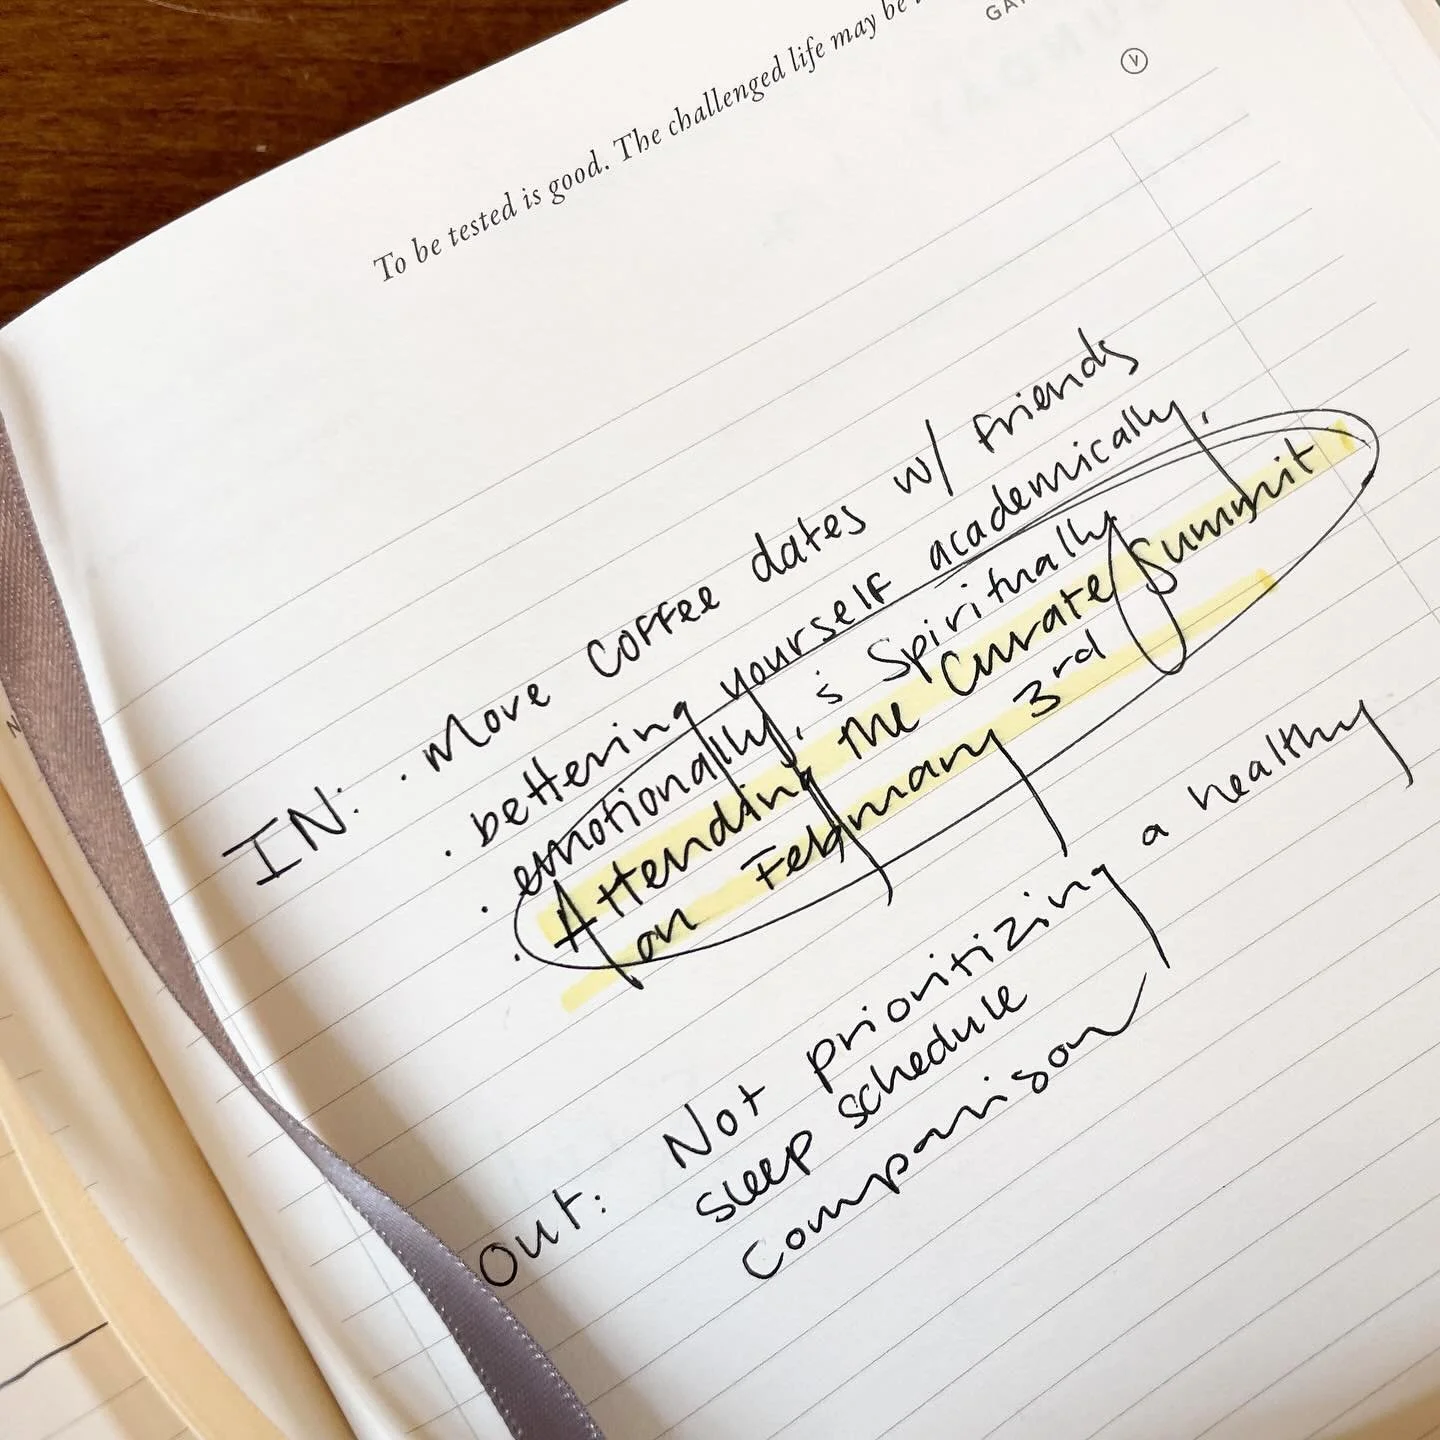 To be tested is good. The challenged life may be
V
IN: · More coffee dates w/ friends
· bettering yourself academically,
· emotionally, & spiritually
· Attending the Curate Summit
on February 3rd
Out: Not prioritizing a healthy
sleep schedule
comparison